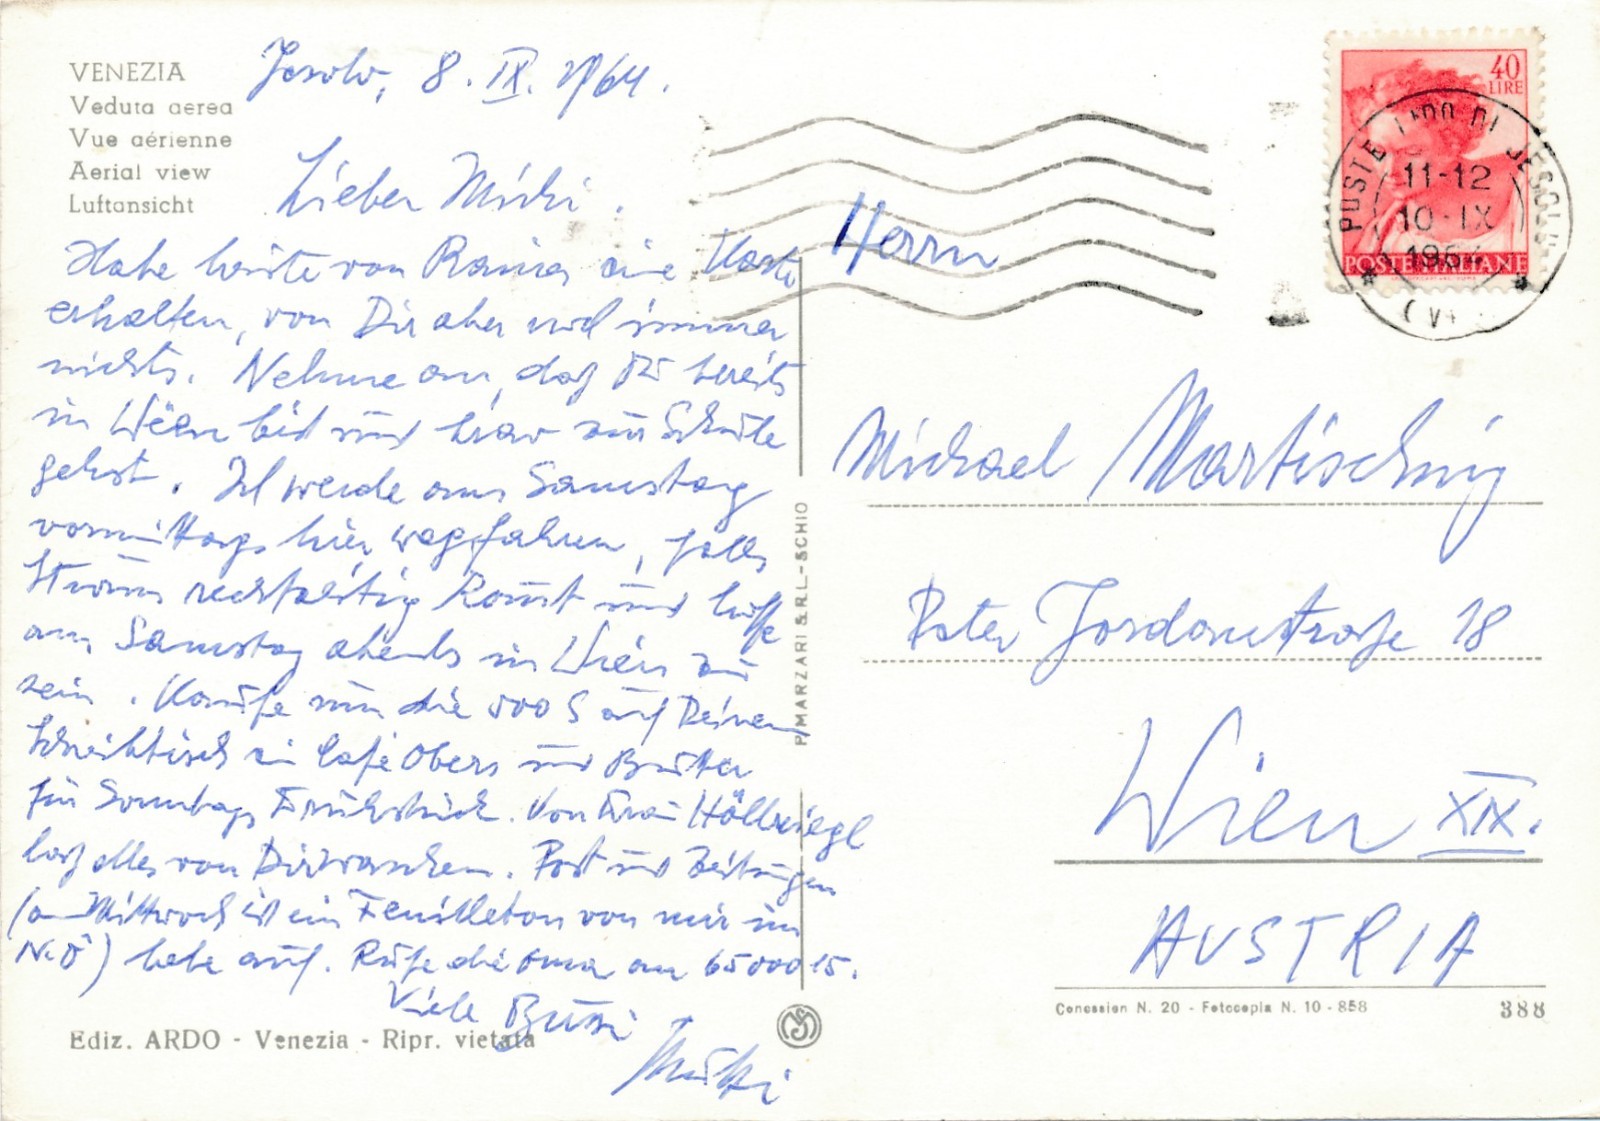 VENEZIA
Veduta aerea
Vue aérienne
Aerial view
Luftansicht
Jesolo, 8. IX. 1964.
Lieber Michi.
Habe heute von Rainer eine Karte
erhalten, von Dir aber noch immer
nichts. Nehme an, daß Du bereits
in Wien bist und brav zur Schule
gehst. Ich werde am Samstag
vormittags hier wegfahren, falls
Strom rechtzeitig kommt und hoffe
am Samstag abends in Wien zu
sein. Kaufe um die 500 S auf Deinem
Schreibtisch ein Café Obers und Butter
für Sonntags Frühstück. Von Frau Höllriegl
laß alles von Dir waschen. Post und Zeitungen
(am Mittwoch ist ein Feuilleton von mir im
N.Ö) hebe auf. Rufe die Oma an 65 000 15.
Viele Bussi
Mutti
Herrn
Michael Martischnig
Peter Jordanstraße 18
Wien XIX.
AUSTRIA
40
LIRE
POSTE ITALIANE
POSTE LIDO DI JESOLO
11-12
10·IX
1964
P. MARZARI S.R.L. - SCHIO
Concession N. 20 - Fotocopia N. 10 - 858
388
Ediz. ARDO - Venezia - Ripr. vietata